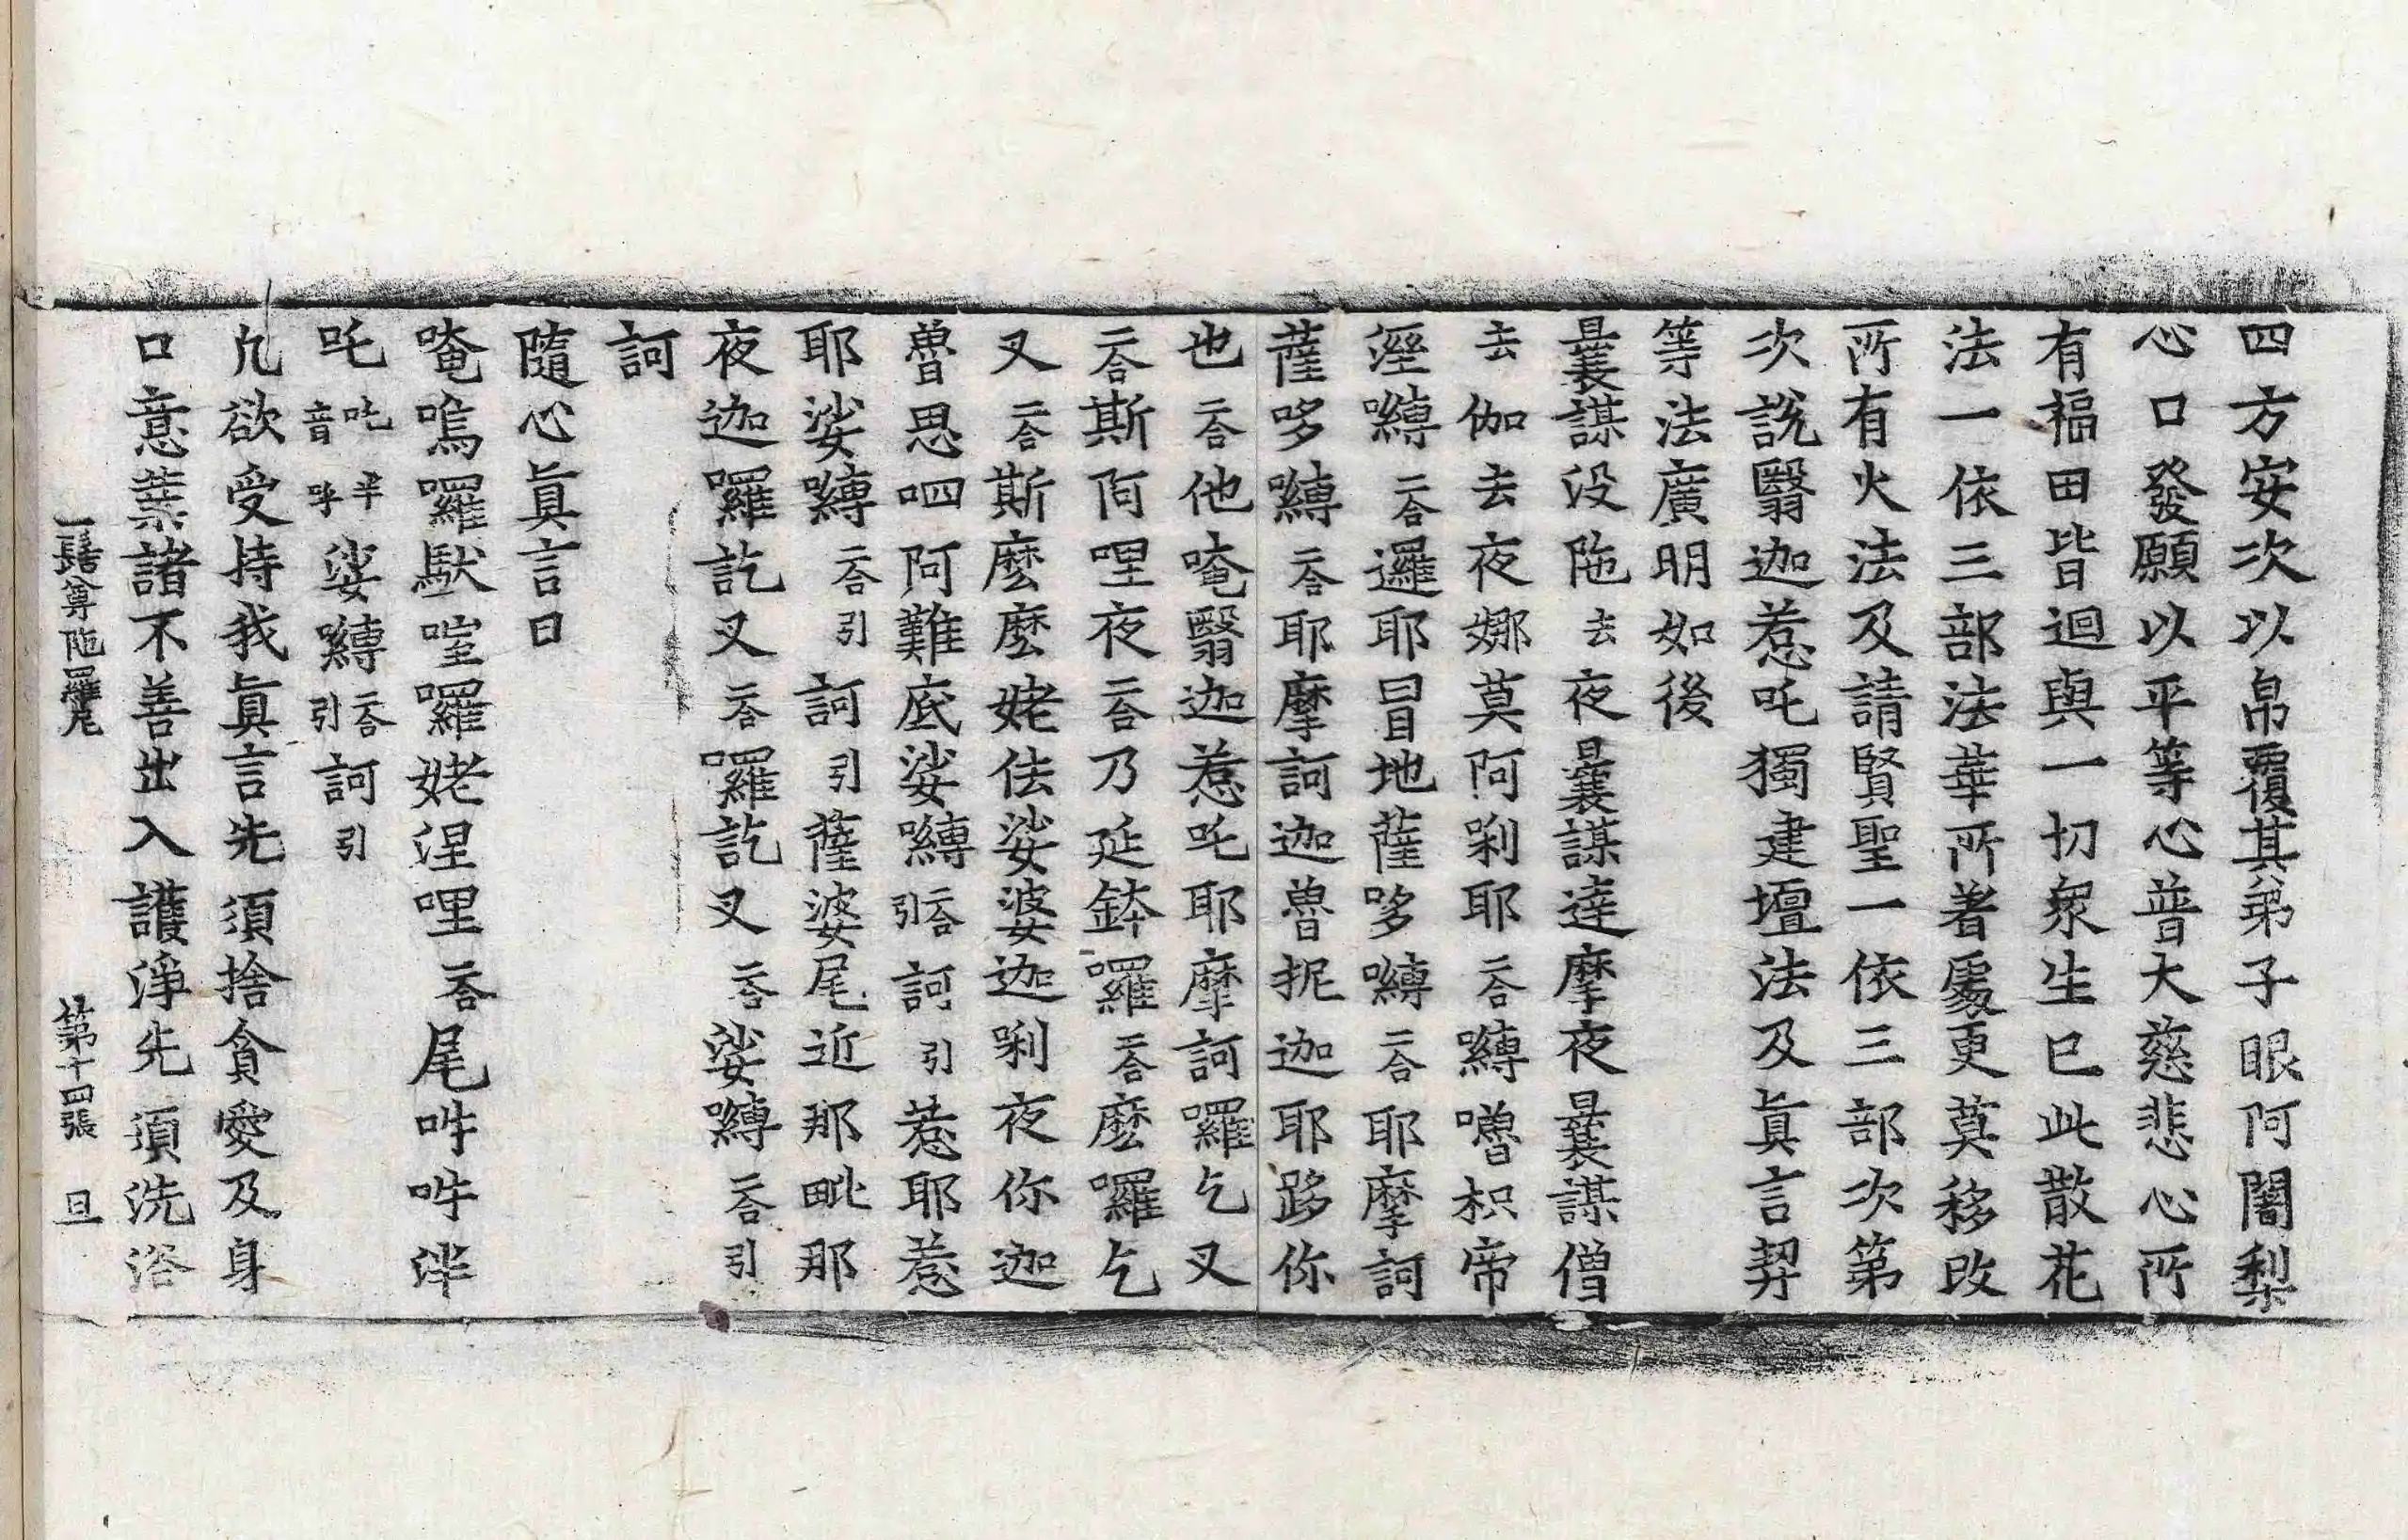 四方安次以帛覆其弟子眼阿闍梨
心口發願以平等心普大慈悲心所
有福田皆迴與一切衆生已此散花
法一依三部法華所著處更莫移改
所有火法及請賢聖一依三部次第
次說翳迦惹吒獨建壇法及眞言契
等法廣明如後
曩謨没陁去夜曩謨達摩夜曩謨僧
去伽去夜娜莫阿唎耶二合嚩嚕枳帝
溼嚩二合邏耶冒地薩哆嚩二合耶摩訶
薩哆嚩二合耶摩訶迦魯抳迦耶跢你
也二合他唵翳迦惹吒耶摩訶囉乞叉
二合斯阿哩夜二合乃延鉢囉二合麽囉乞
叉二合斯麽麽姥佉娑婆迦唎夜你迦
魯思呬阿難底娑嚩二合引訶引惹耶惹
耶娑嚩二合引訶引薩婆尾近那毗那
夜迦囉訖叉二合囉訖叉二合娑嚩二合引
訶
隨心眞言曰
唵嗚囉馱嚂囉姥涅哩二合尾吽吽泮
吒吒半音呼娑嚩二合引訶引
凢欲受持我眞言先須捨貪愛及身
口意業諸不善出入護淨先須洗浴
一髻尊陁羅尼 第十四張 旦